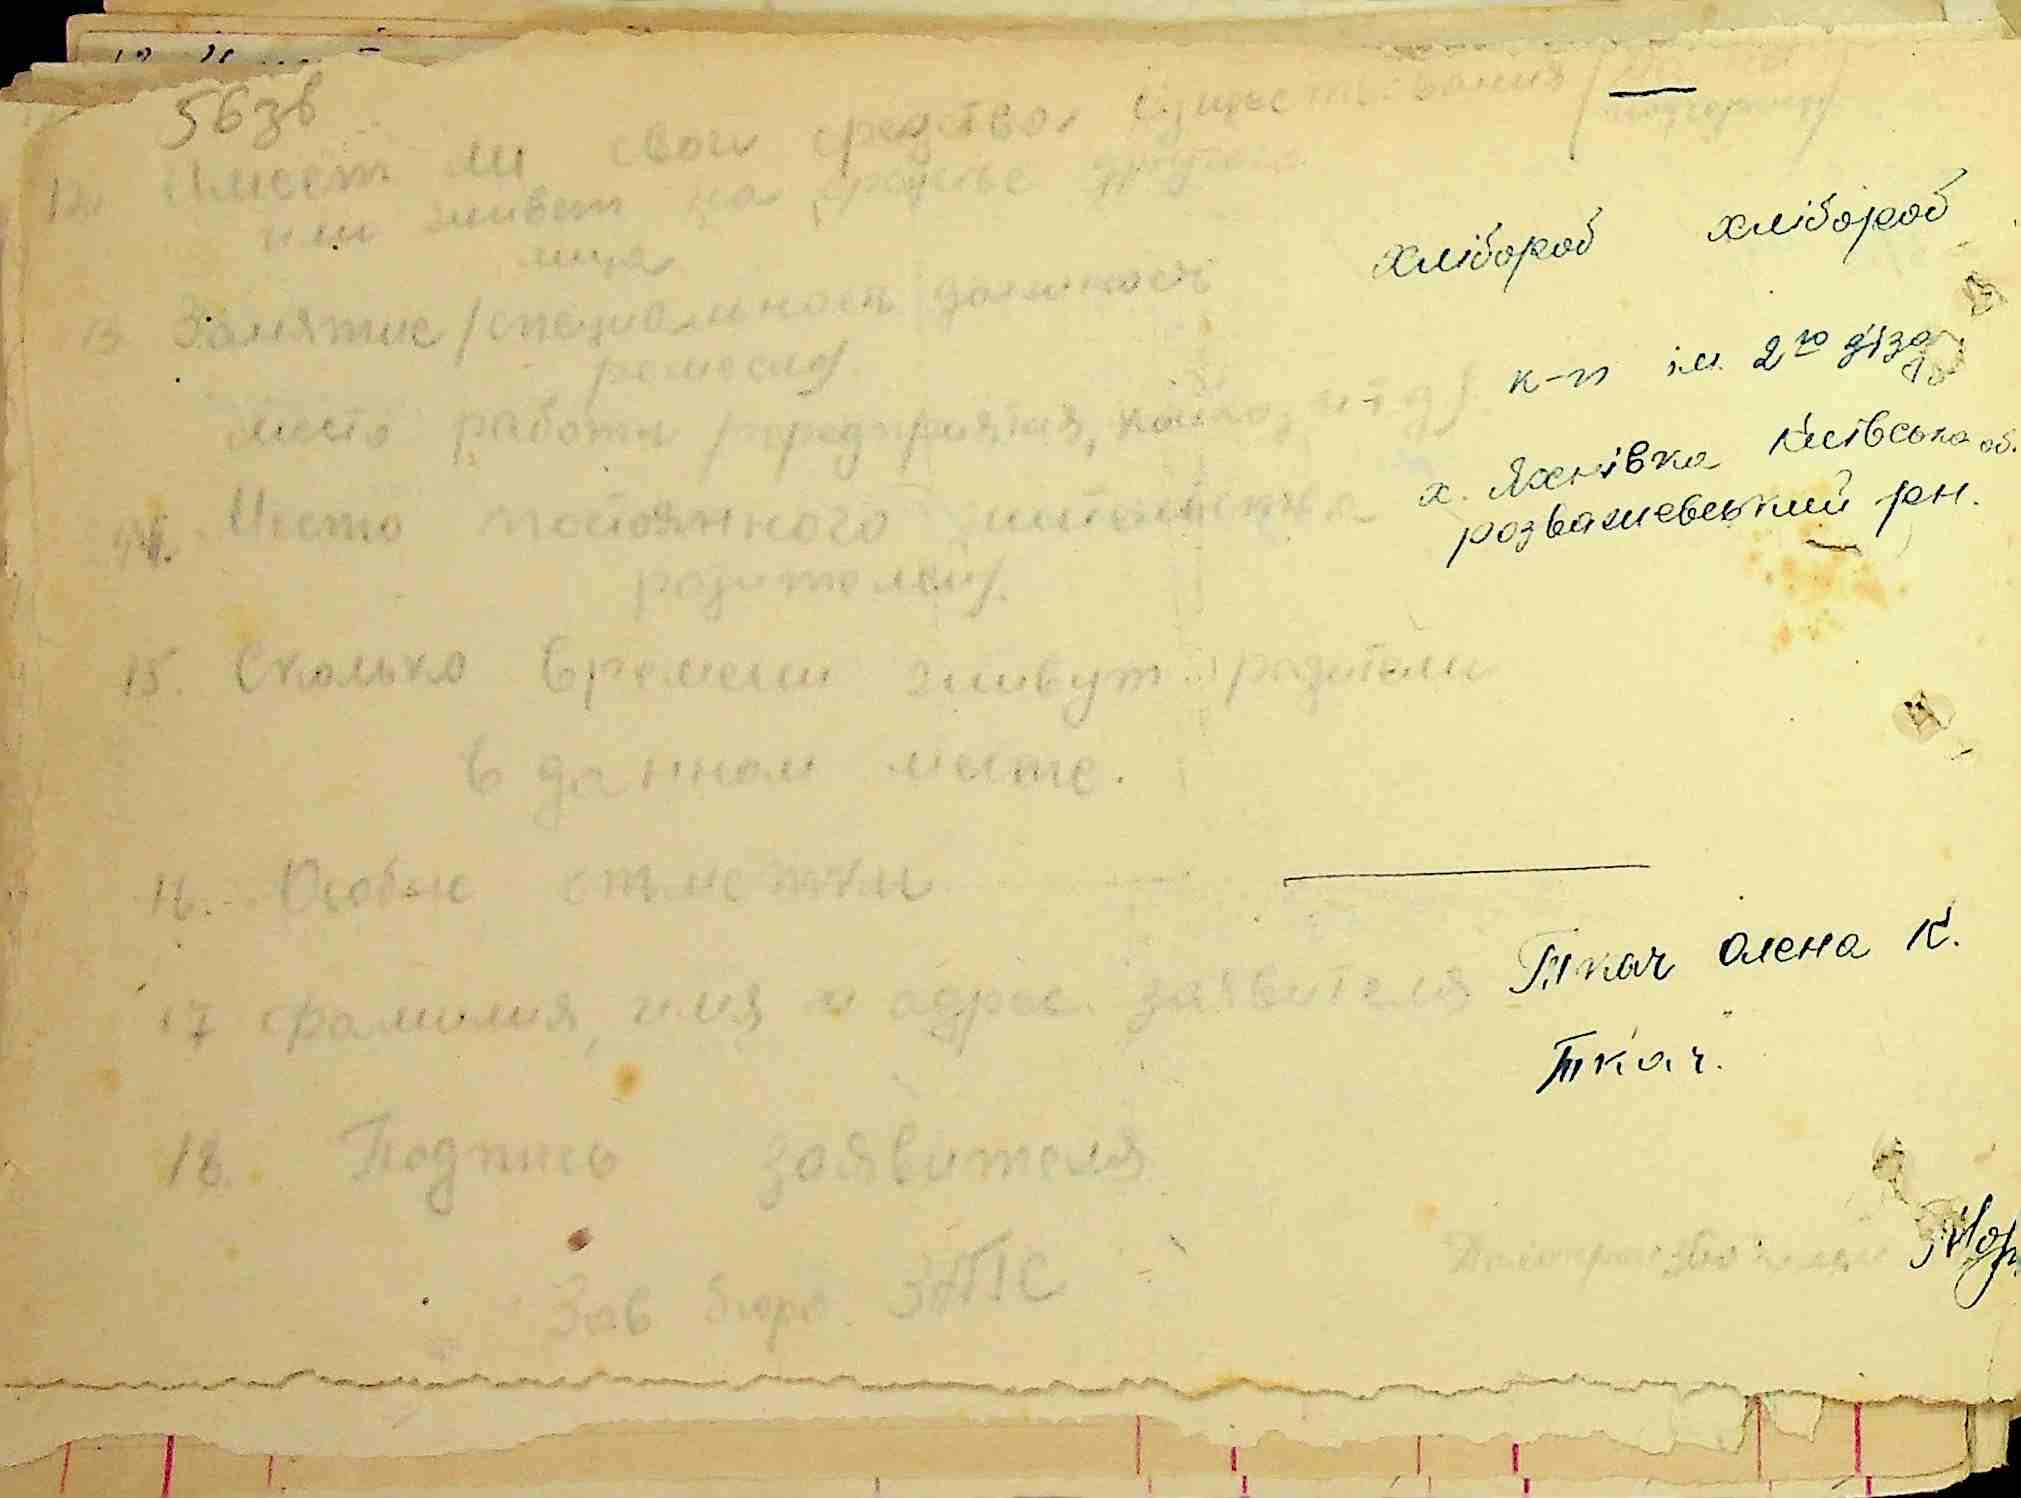 56зв
12. Имеет ли свои средства существования
или живет на средства другого
лица
хлібороб хлібороб
13 Занятие /специальность должность
ремесло/
к-п ім. 2го з'їзд
место работы /предприятия, колхоз и т д/.
х. Яхнівка Київська об.
розважевський рн.
14. Место постоянного жительства
родителей/.
15. Сколько времени живут родители
в данном месте.
16. Особые отметки
17 фамилия, имя и адрес заявителя Ткач Олена К.
Ткач.
18. Подпись заявителя
Зав бюро ЗАГС